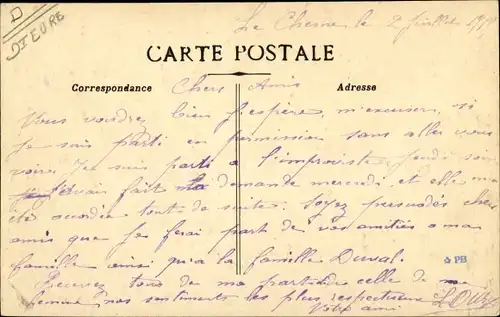 D
D'EURE
Le Chesne le 2 Juillet
CARTE POSTALE
Correspondance Adresse
Chers Amis
Vous voudrez bien j'espère, m'excuser, si
je suis parti en permission sans aller vous
voir. Je suis parti a l'improviste Jeudi soir
j'avais fait ma demande mercredi, et elle m'a
été accordée tout de suite. Soyez persuadés chers
amis que je ferai part de vos amitiés a ma
famille ainsi qu'a la famille Duval.
Recevez tous de ma part de celle de ma
femme nos sentiments les plus respectueux
Votre ami
PB